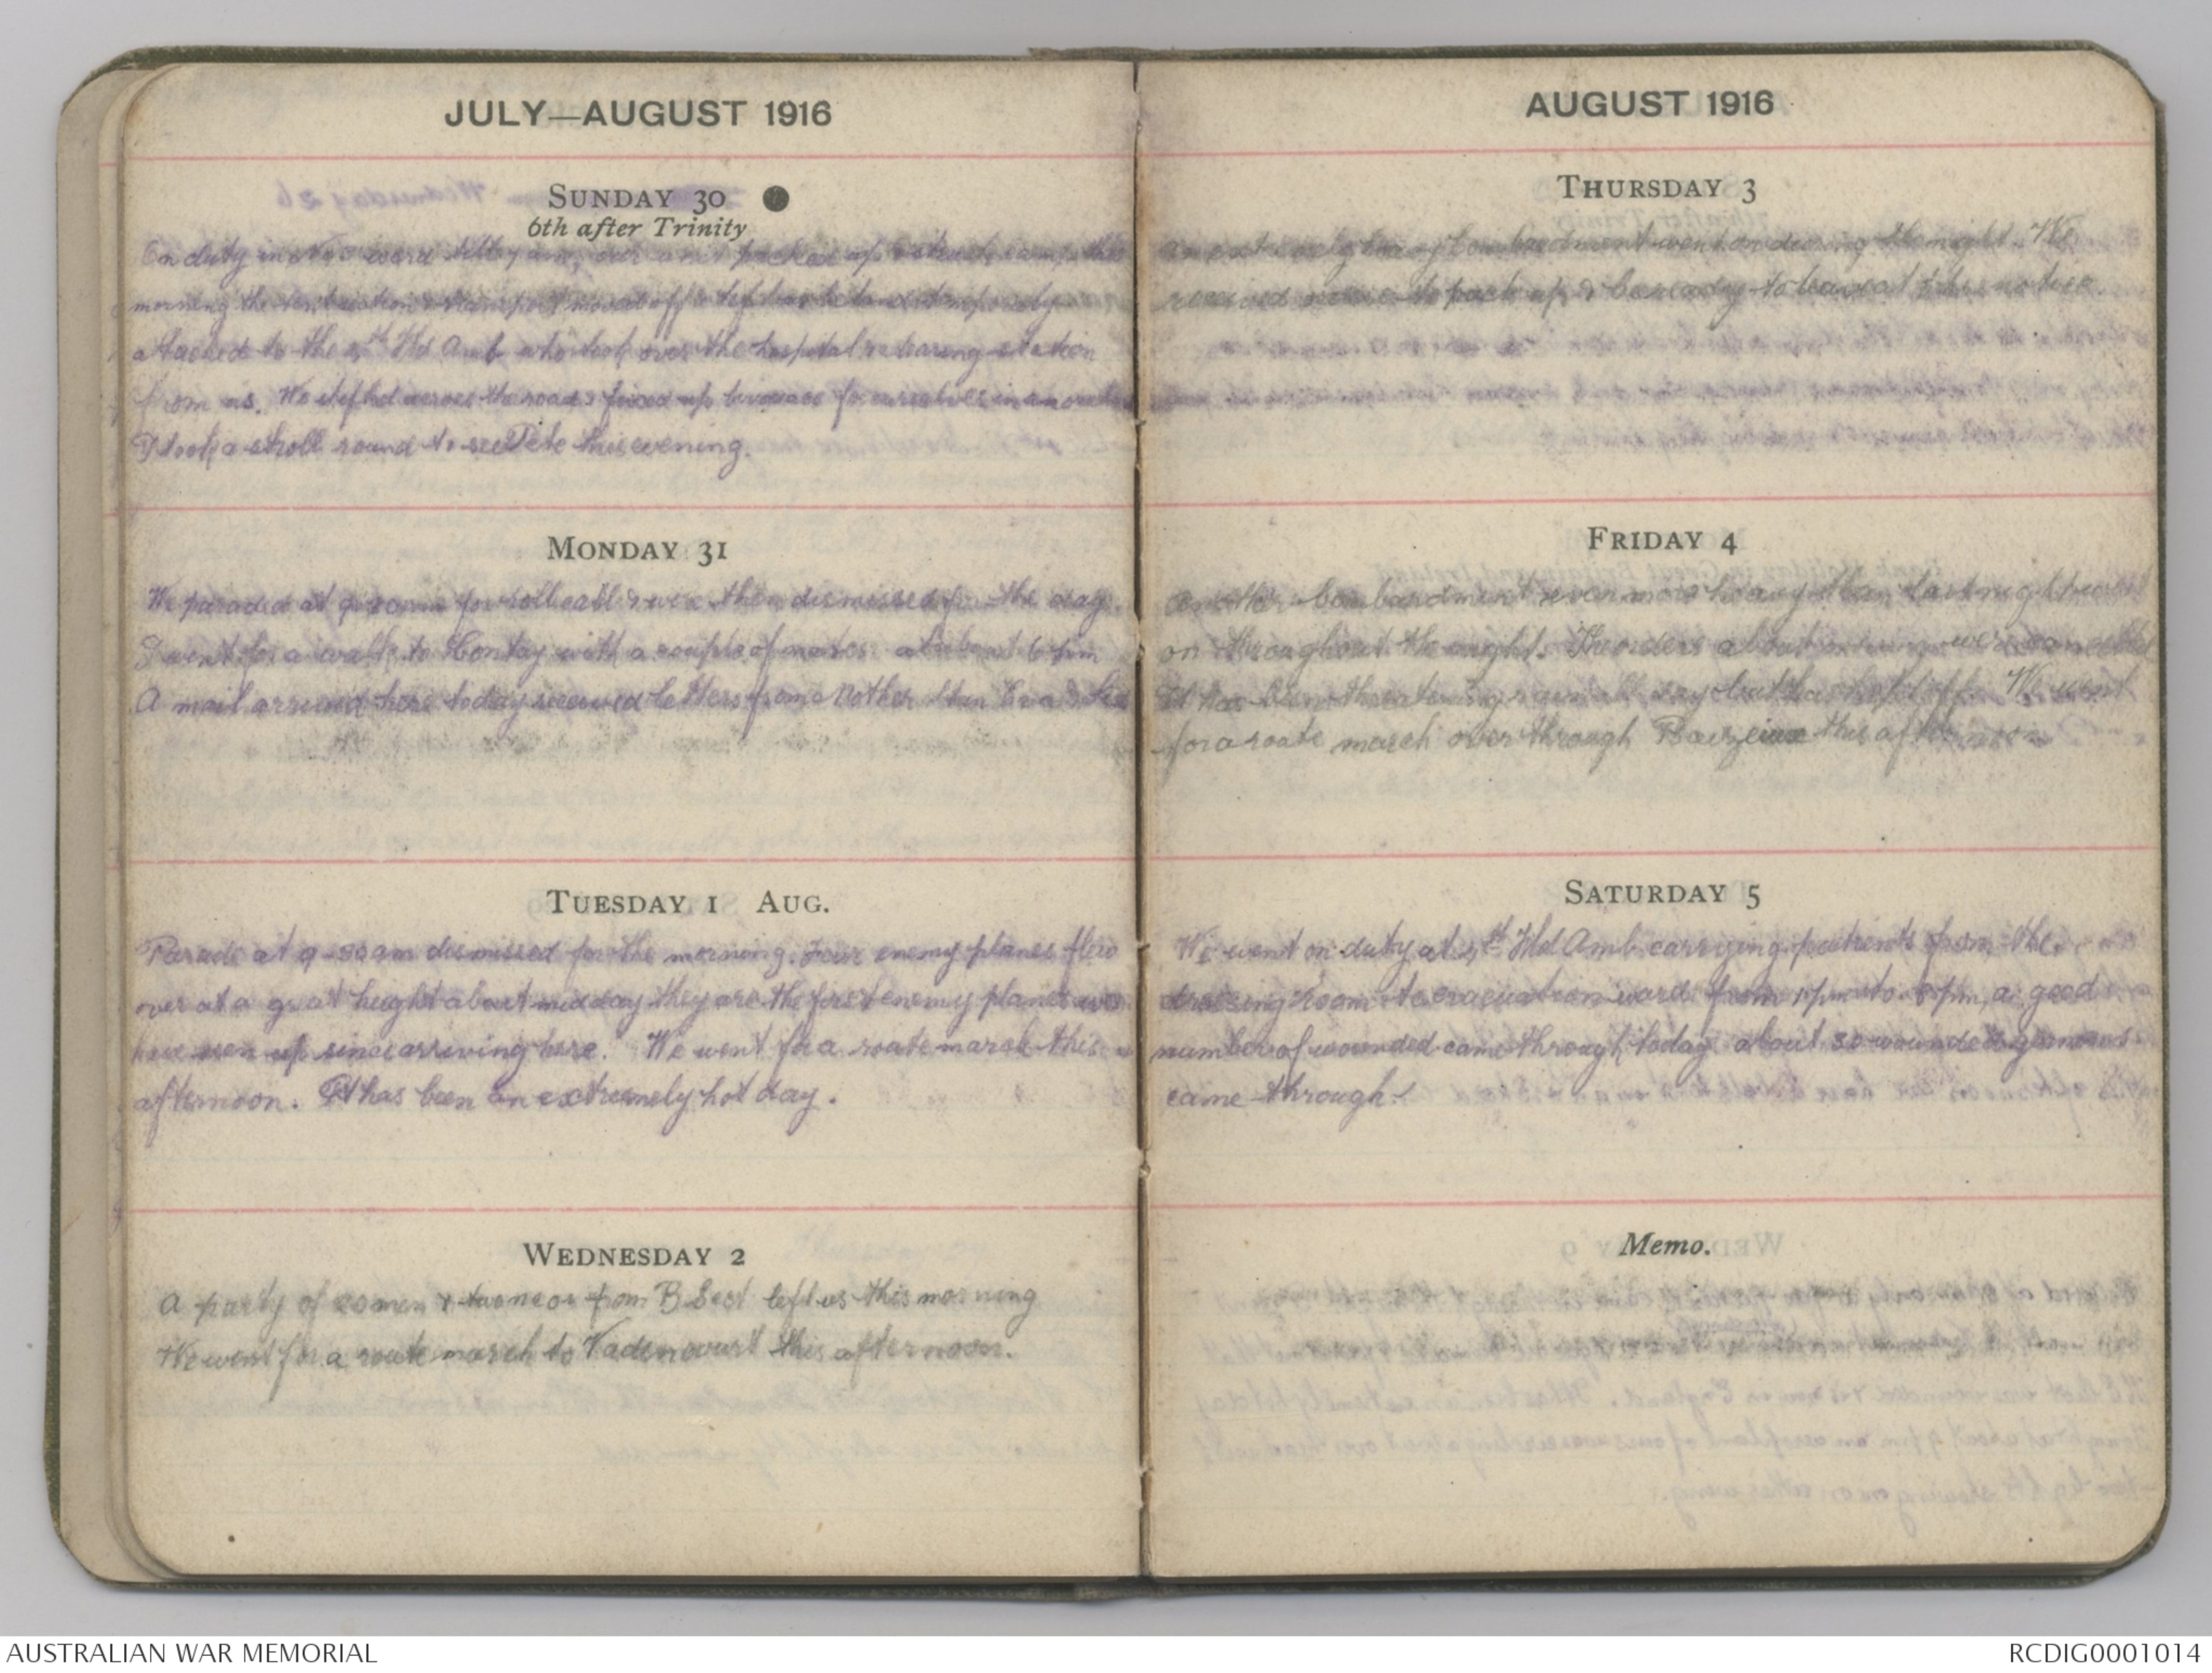 JULY—AUGUST 1916
SUNDAY 30
6th after Trinity
On duty in ward till 7 am, our unit packed up & struck camp this
morning the tent section & transport moved off & left us behind temporarily
attached to the 4th Fld Amb who took over the hospital & clearing station
from us. We shifted across the road & fixed up bivouacs for ourselves in an
I took a stroll round to see Pete this evening.
MONDAY 31
We paraded at 9.30am for roll call & were then dismissed for the day.
I went for a walk to Contay with a couple of mates at about 6 pm
A mail arrived here today received letters from Mother Stan Eva &
TUESDAY 1 AUG.
Parade at 9-30am dismissed for the morning. Four enemy planes flew
over at a great height about midday they are the first enemy planes we
have seen up since arriving here. We went for a route march this
afternoon. It has been an extremely hot day.
WEDNESDAY 2
A party of 20 men & two ncos from B Sect left us this morning
We went for a route march to Vadencourt this afternoon.
AUGUST 1916
THURSDAY 3
An extremely heavy bombardment went on during the night. We
received orders to pack up & be ready to leave at notice.
FRIDAY 4
Another bombardment even more heavy than last night went
on throughout the night. The orders about moving were cancelled
It has been threatening rain all day but has kept off. We went
for a route march over through this afternoon
SATURDAY 5
We went on duty at 4th Fld Amb carrying patients from the
dressing room to evacuation ward from 1pm to 8pm, a good
number of wounded came through today about 30 wounded germans
came through
Memo.
AUSTRALIAN WAR MEMORIAL
RCDIG0001014